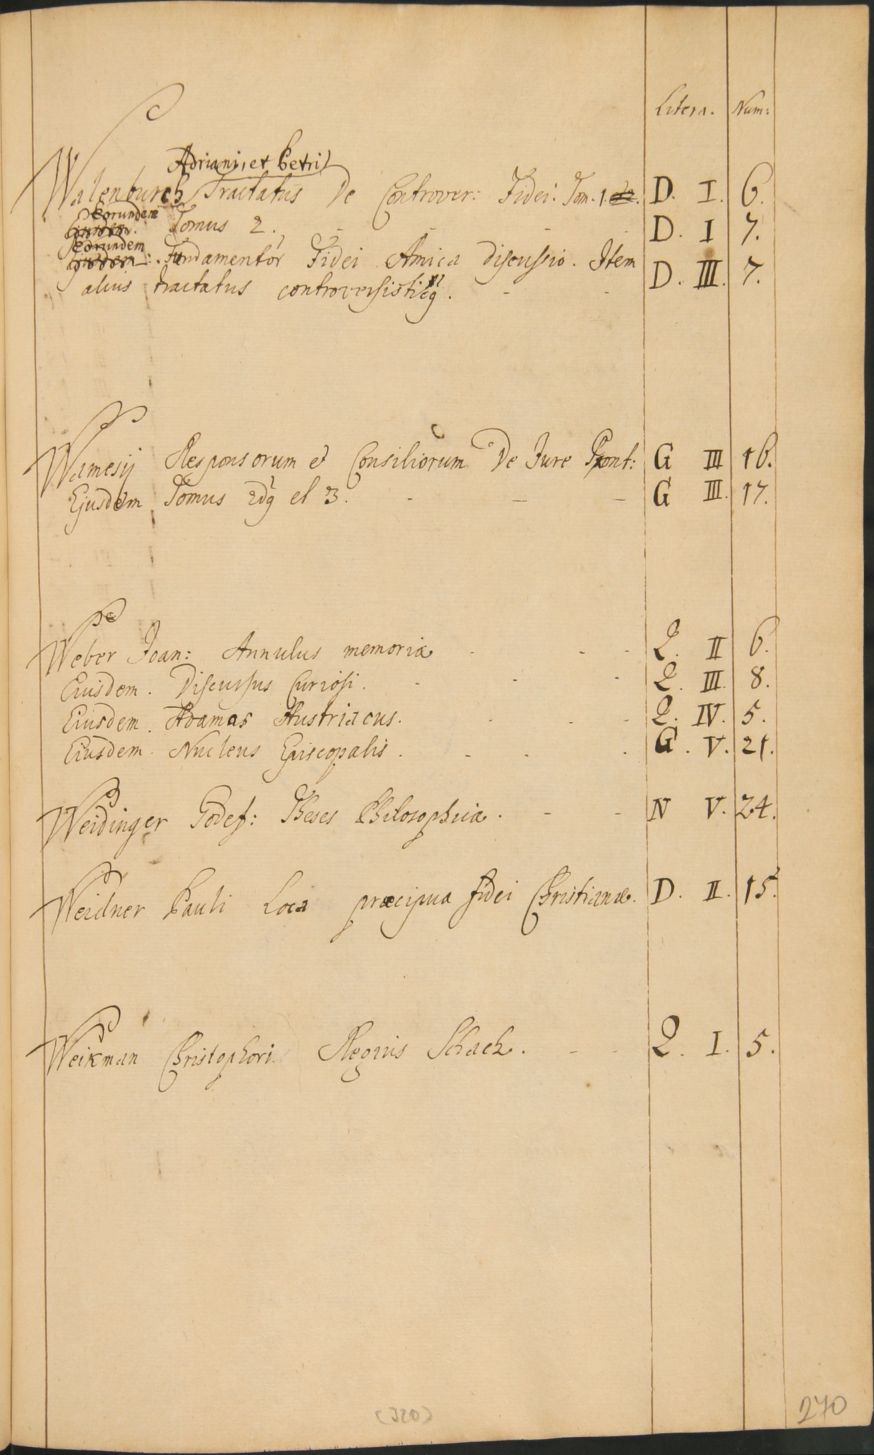 Litera. Num:
Adriani, et Petri
Walenburch Tractatus De Controver: Fidei. Tom. 1 D. I. 6.
Eorundem Tomus 2. - - - D. I 7.
Eorundem Fundamentor Fidei Amica discussio. Item D. III. 7.
alius tractatus controversisticq. - -
Wamesij Responsorum et Consiliorum De Jure Pont: G III 16.
Ejusdem Tomus 2dq et 3. - - - G III. 17.
Weber Joan: Annulus memoriæ - - - Q. II 6.
Eiusdem. Discursus Curiosi. - - - Q. III. 8.
Eiusdem. Adamas Austriacus. - - - Q. IV. 5.
Eiusdem. Nucleus Episcopalis. - - . G. V. 21.
Weidinger Godef: Theses Philosophicæ. - - N V. 24.
Weidner Pauli Loca præcipua fidei Christianæ. D. II. 15.
Weikman Christophori Regius Schach. - - Q. I. 5.
(320)
270